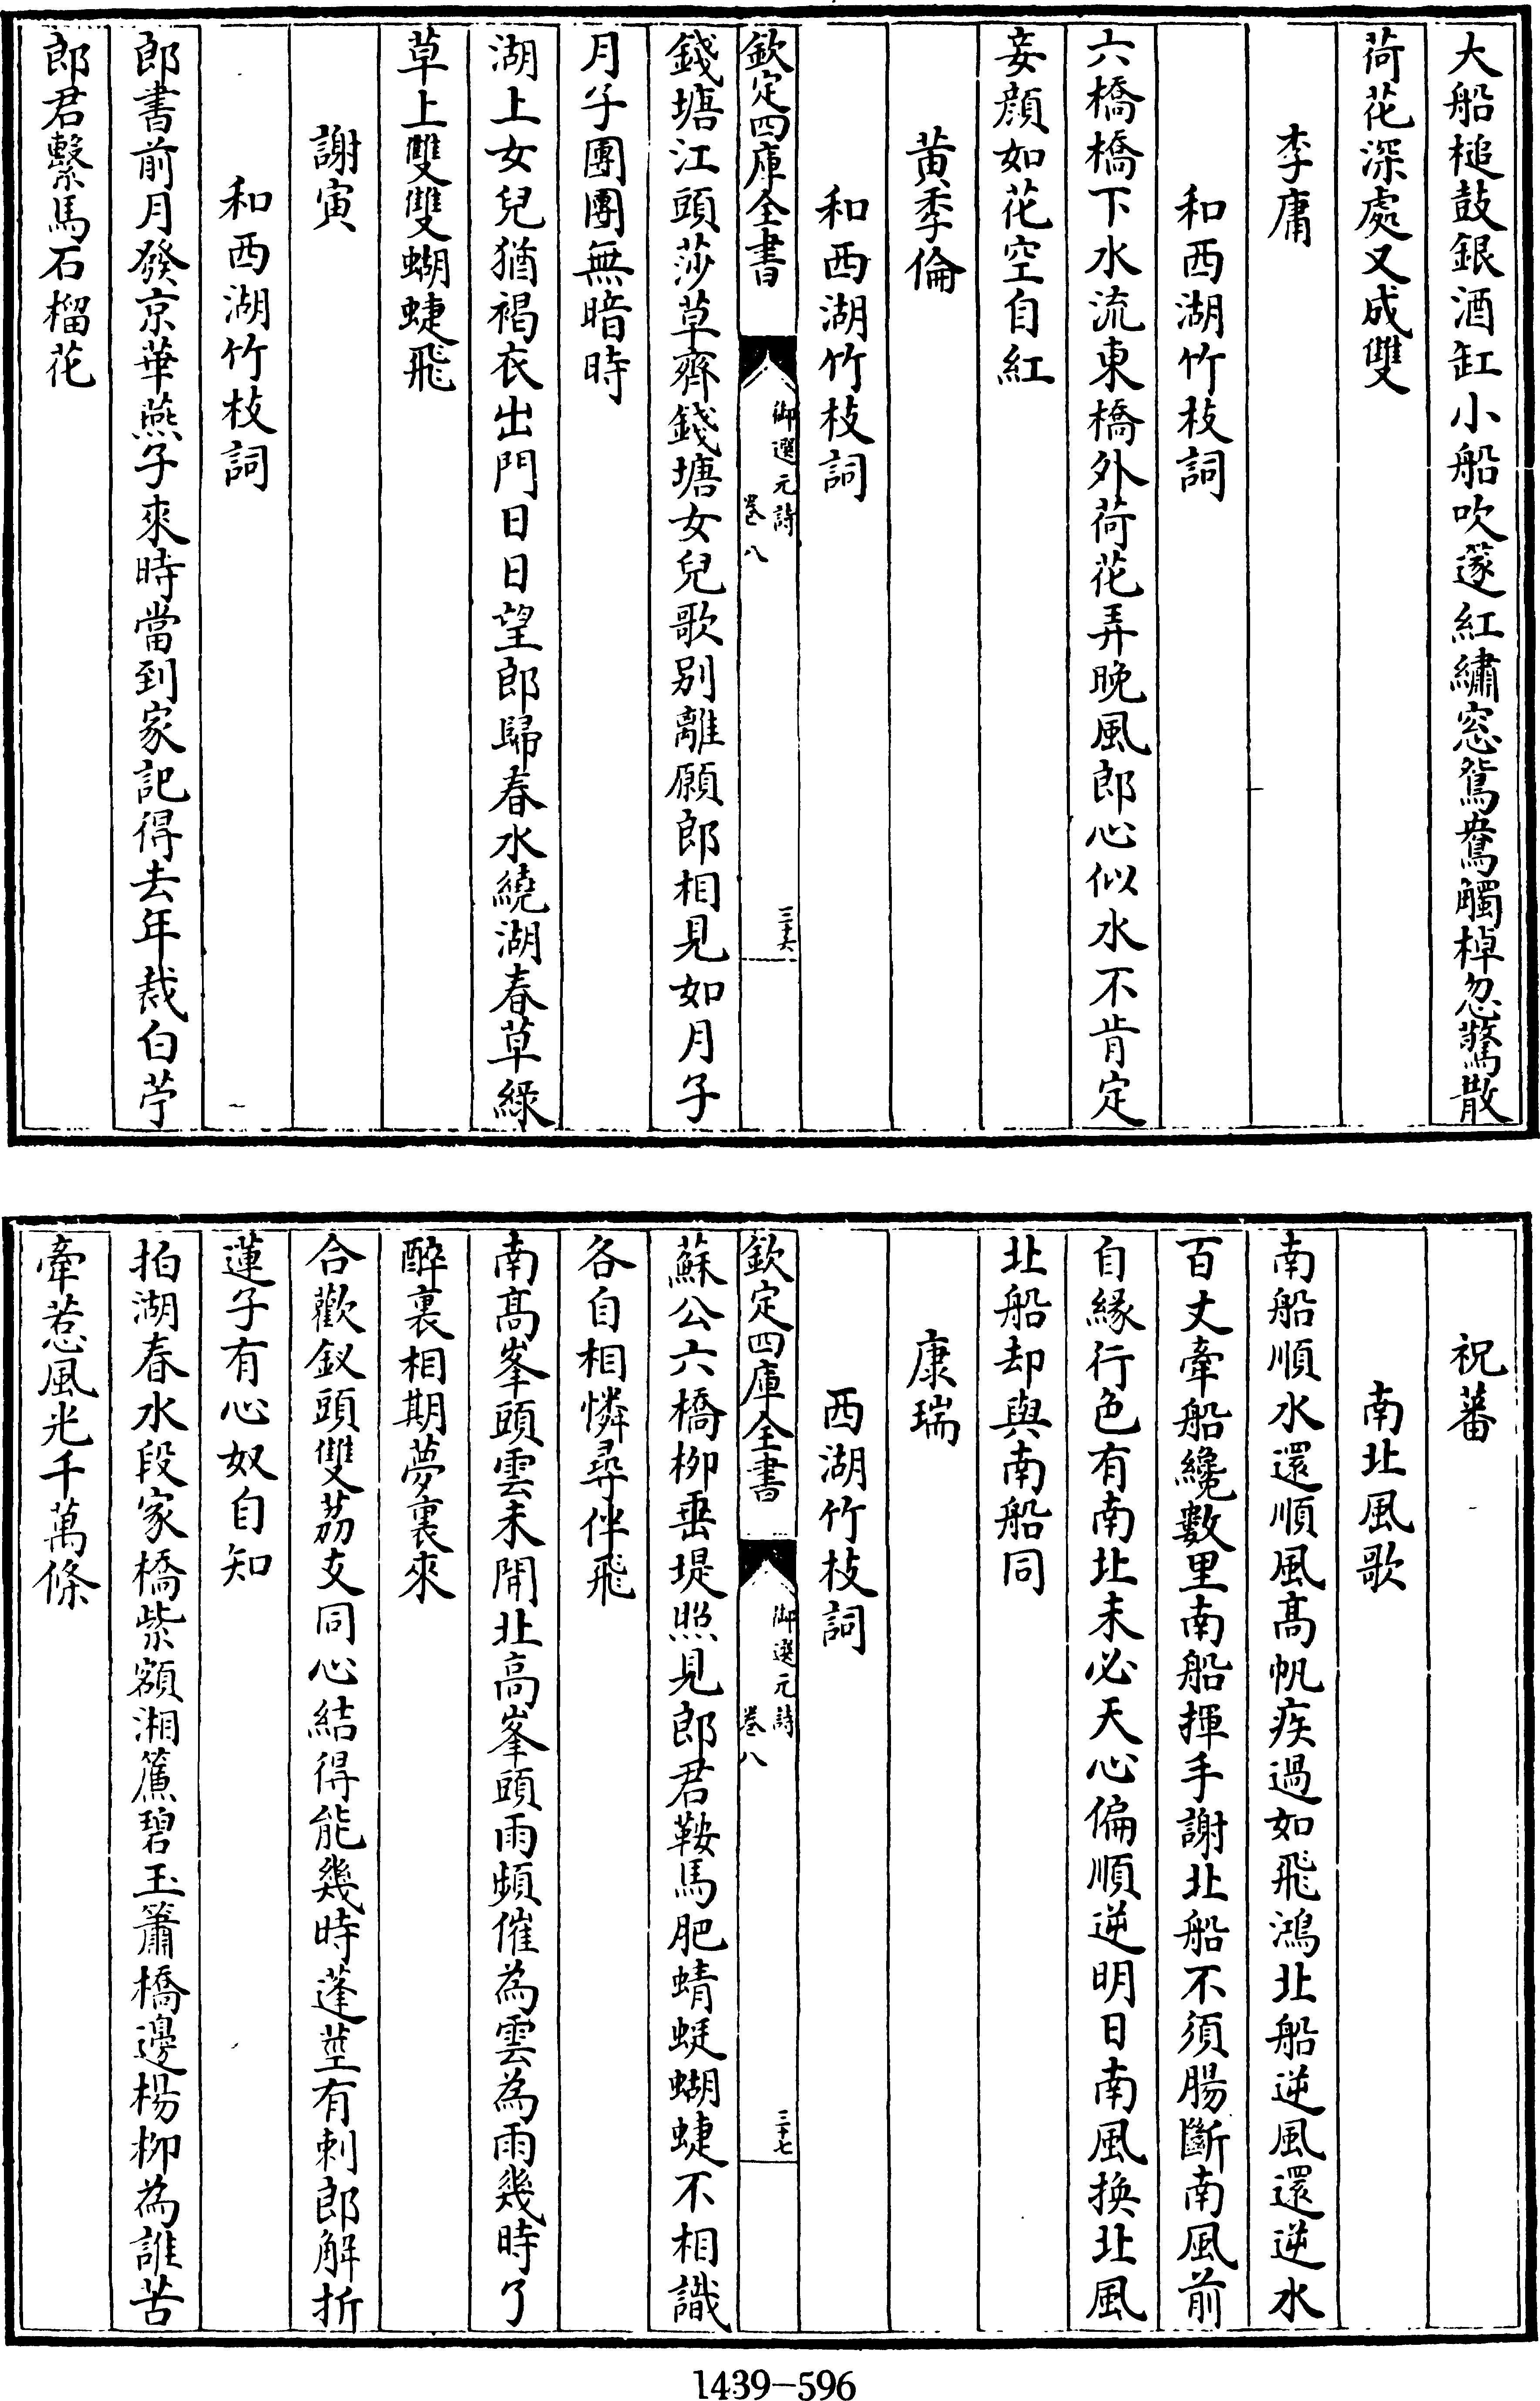 大船槌鼓銀酒缸小船吹篴紅繡窓鴛鴦觸棹忽驚散
荷花深處又成雙
李庸
和西湖竹枝詞
六橋橋下水流東橋外荷花弄晚風郎心似水不肯定
妾顏如花空自紅
黄季倫
和西湖竹枝詞
欽定四庫全書
御選元詩
卷八
三十六
錢塘江頭莎草齊錢塘女兒歌别離願郎相見如月子
月子團團無暗時
湖上女兒猶褐衣出門日日望郎歸春水繞湖春草綠
草上雙雙蝴蝶飛
謝寅
和西湖竹枝詞
郎書前月發京華燕子來時當到家記得去年裁白苧
郎君繫馬石榴花
祝蕃
南北風歌
南船順水還順風高帆疾過如飛鴻北船逆風還逆水
百丈牽船纔數里南船揮手謝北船不須腸斷南風前
自緣行色有南北未必天心偏順逆明日南風換北風
北船却與南船同
康瑞
西湖竹枝詞
欽定四庫全書
御選元詩
卷八
三十七
蘇公六橋柳垂堤照見郎君鞍馬肥蜻蜓蝴蝶不相識
各自相憐尋伴飛
南高峯頭雲未開北高峯頭雨頻催為雲為雨幾時了
醉裏相期夢裏來
合歡釵頭雙荔支同心結得能幾時蓬莖有刺郎解折
蓮子有心奴自知
拍湖春水段家橋紫額湘簾碧玉簫橋邊楊柳為誰苦
牽惹風光千萬條
1439-596